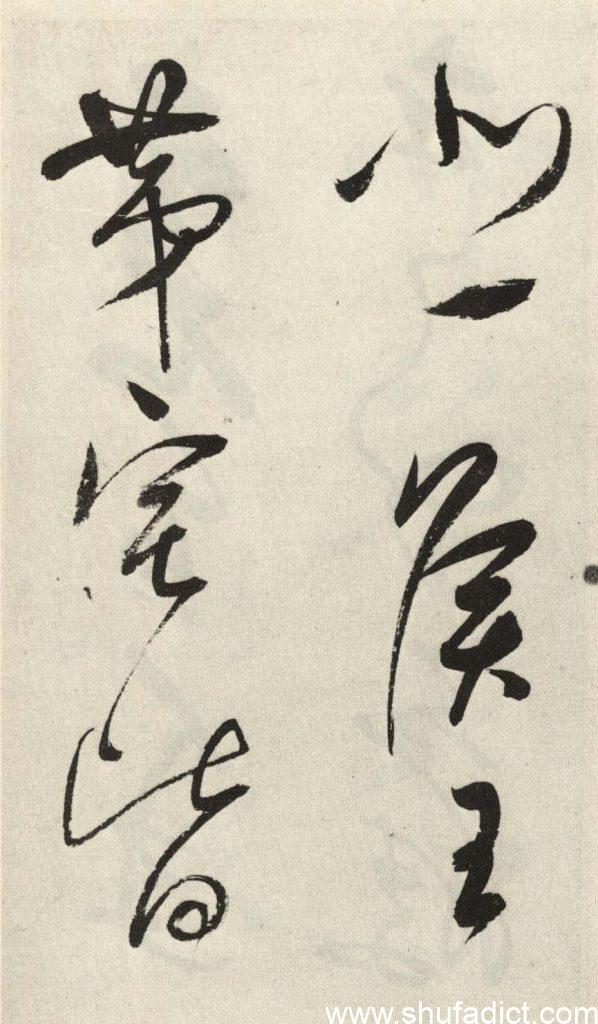 悲侯王
第宅皆
www.shufadict.com